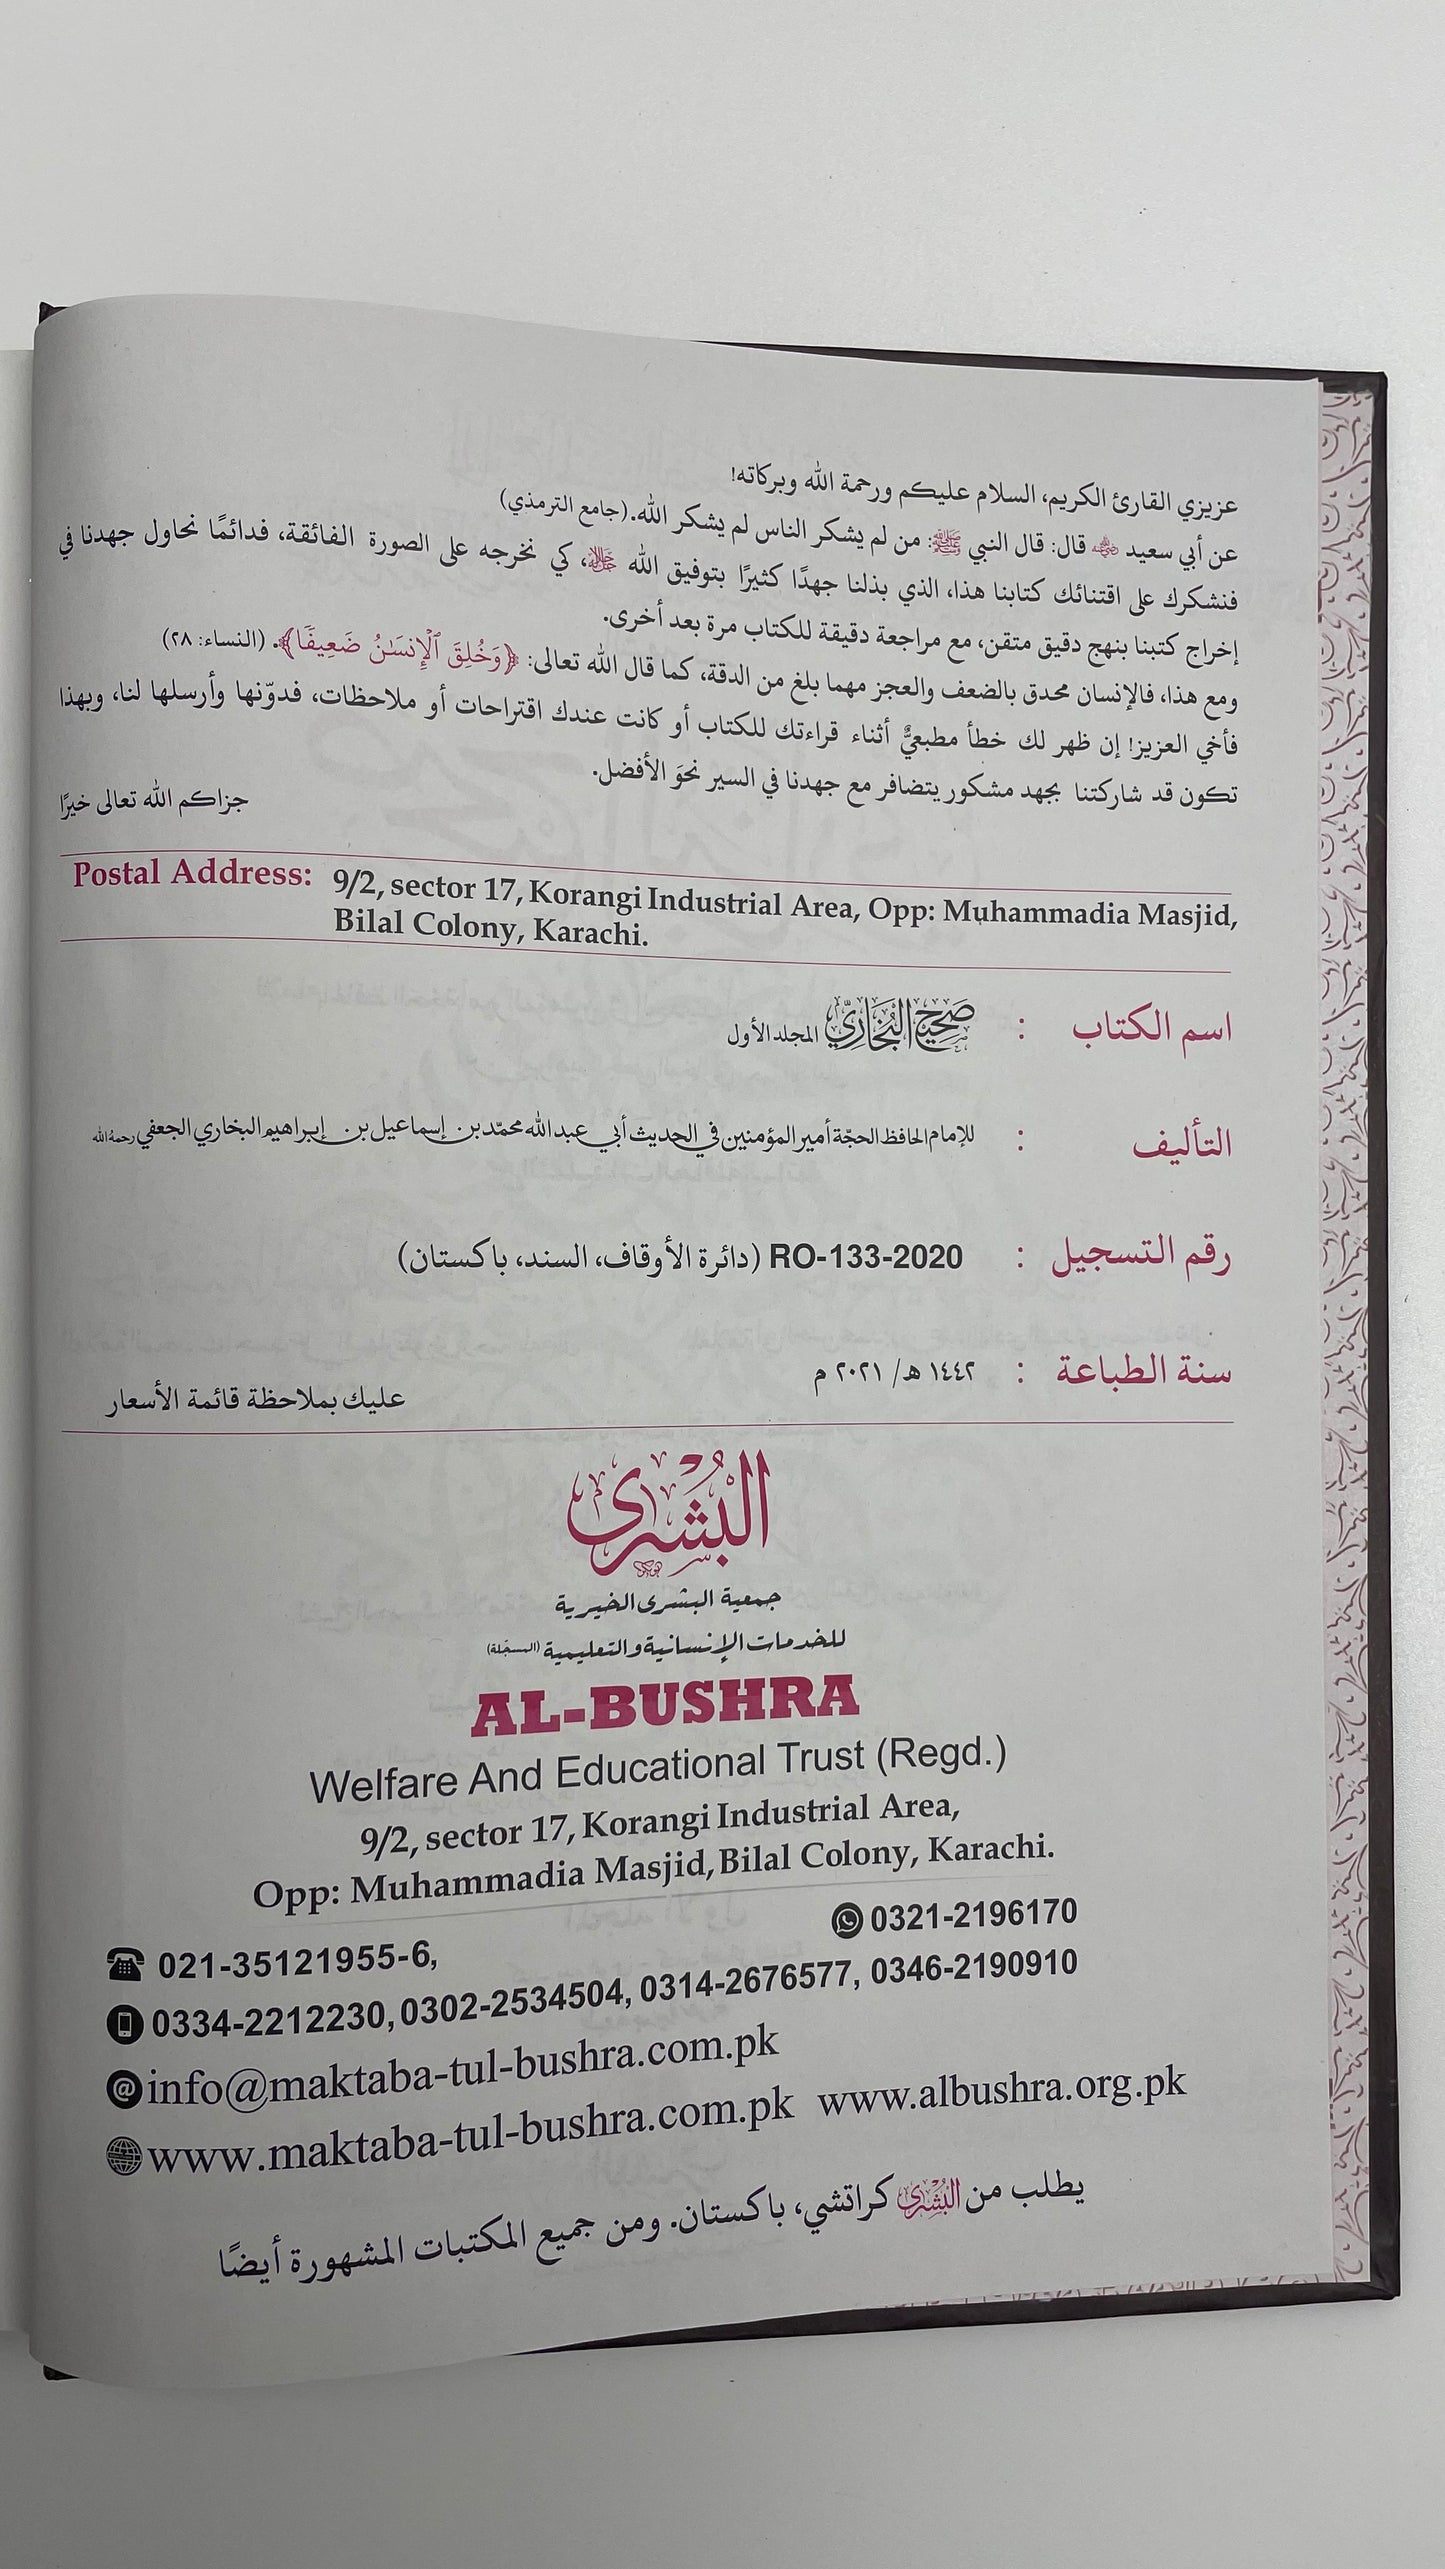 عزيزي القارئ الكريم، السلام عليكم ورحمة الله وبركاته!
عن أبي سعيد ﵁ قال: قال النبي ﷺ: من لم يشكر الناس لم يشكر الله. (جامع الترمذي)
فنشكرك على اقتنائك كتابنا هذا، الذي بذلنا جهدًا كثيرًا بتوفيق الله ﷻ، كي نخرجه على الصورة الفائقة، فدائمًا نحاول جهدنا في
إخراج كتبنا بنهج دقيق متقن، مع مراجعة دقيقة للكتاب مرة بعد أخرى.
ومع هذا، فالإنسان محدق بالضعف والعجز مهما بلغ من الدقة، كما قال الله تعالى: ﴿وَخُلِقَ ٱلْإِنسَـٰنُ ضَعِيفًا﴾. (النساء: ٢٨)
فأخي العزيز! إن ظهر لك خطأ مطبعيٌّ أثناء قراءتك للكتاب أو كانت عندك اقتراحات أو ملاحظات، فدوّنها وأرسلها لنا، وبهذا
تكون قد شاركتنا بجهد مشكور يتضافر مع جهدنا في السير نحوَ الأفضل.
جزاكم الله تعالى خيرًا
Postal Address: 9/2, sector 17, Korangi Industrial Area, Opp: Muhammadia Masjid,
Bilal Colony, Karachi.
اسم الكتاب : صَحِيحُ البُخَارِيّ المجلد الأول
التأليف : للإمام الحافظ الحجّة أمير المؤمنين في الحديث أبي عبد الله محمّد بن إسماعيل بن إبراهيم البخاري الجعفي رحمه الله
رقم التسجيل : RO-133-2020 (دائرة الأوقاف، السند، باكستان)
سنة الطباعة : ١٤٤٢ هـ/ ٢٠٢١ م
عليك بملاحظة قائمة الأسعار
البُشرى
جمعية البشرى الخيرية
للخدمات الإنسانية والتعليمية (المسجّلة)
AL-BUSHRA
Welfare And Educational Trust (Regd.)
9/2, sector 17, Korangi Industrial Area,
Opp: Muhammadia Masjid, Bilal Colony, Karachi.
021-35121955-6, 0321-2196170
0334-2212230, 0302-2534504, 0314-2676577, 0346-2190910
info@maktaba-tul-bushra.com.pk
www.maktaba-tul-bushra.com.pk www.albushra.org.pk
يطلب من البُشرى كراتشي، باكستان. ومن جميع المكتبات المشهورة أيضًا